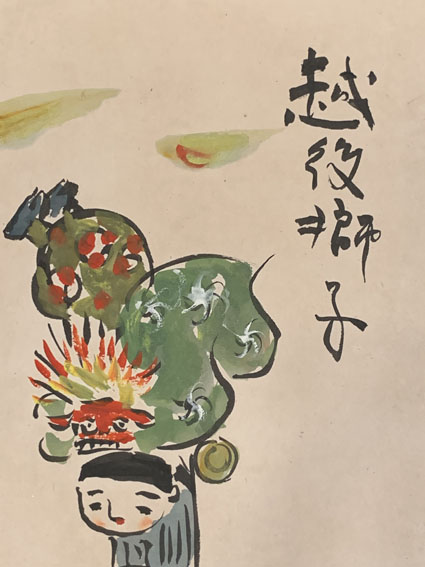 越後獅子